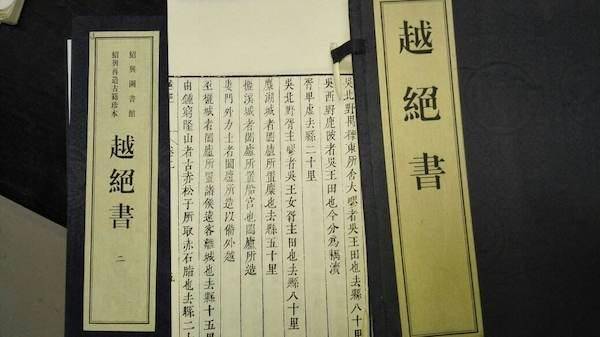 越絕書
吳北野禺櫟東所舍大疁者吳王田也去縣八十里
吳西野鹿陂者吳王田也今分為耦瀆
胥卑虛去縣二十里
吳北野胥主疁者吳王女胥主田也去縣八十里
麋湖城者闔廬所置麋也去縣五十里
欐溪城者闔廬所置船宮也闔廬所造
婁門外力士者闔廬所造以備外越
巫欐城者闔廬所置諸侯遠客離城也去縣十五里
由鍾窮隆山者古赤松子所取赤石脂也去縣二十
紹興圖書館
紹興再造古籍珍本
越絕書
二